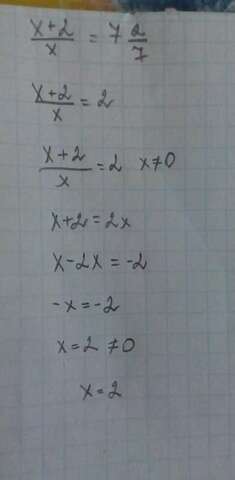 x+2/x = 7 2/7
x+2/x = 2
x+2/x = 2 x≠0
x+2=2x
x-2x=-2
-x=-2
x=2 ≠0
x=2